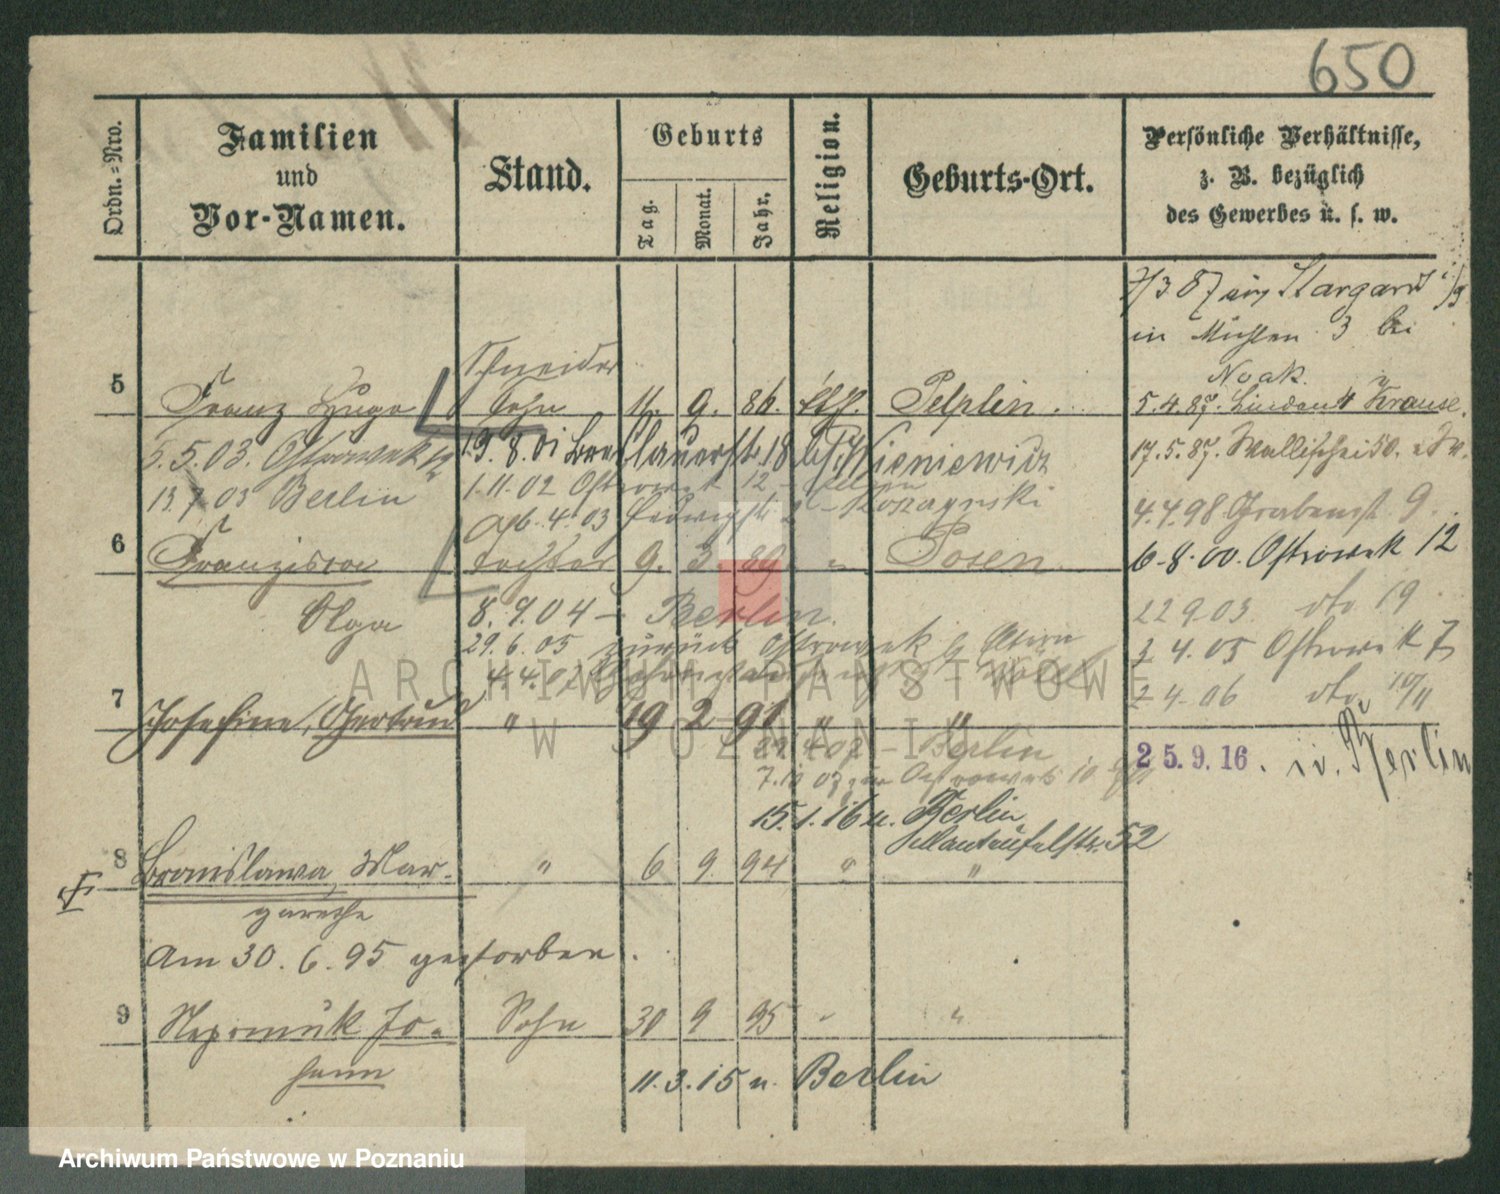 650
Ordn.-Nro.
Familien
und
Vor-Namen.
Stand.
Geburts
Tag.
Monat.
Jahr.
Religion.
Geburts-Ort.
Persönliche Verhältnisse,
z. B. bezüglich
des Gewerbes u. s. w.
7/3 87 aus Stargard
in Mühlen 3 bei
Noak.
5 Franz Hugo Schneider Sohn 11. 9. 86. kth. Pelplin.
5.4.87. Linden 4 Krause.
5.5.03. Ostrowek 12
19.8.01 Breslauerstr. 18 b/ Wieniewicz
17.5.87. Wallischei
13.7.03 Berlin
1.11.02 Ostrowek 12
6.4.03
4.4.98 Grabenst. 9.
6 Franziska Tochter 9. 3 89 " Posen
6.8.00. Ostrowek 12
Olga
8.9.04 - Berlin.
22 9 03 dto 19
29.6.05 zurück Ostrowek b/ Eltern
2 4.05 Ostrowek 7
2 4.06 dto 10/11
7 Josefine, Gertrud " 19 2 91 " "
Berlin
25.9.16. n. Berlin
15.1.16 n. Berlin
Manteufelstr. 52
8 Bronislawa, Mar- " 6 9. 94 " "
garethe
Am 30.6.95 gestorben.
9 Nepomuk Jo- Sohn 30 9 95 " "
hann
11.3.15 n. Berlin
ARCHIWUM PAŃSTWOWE
W POZNANIU
Archiwum Państwowe w Poznaniu